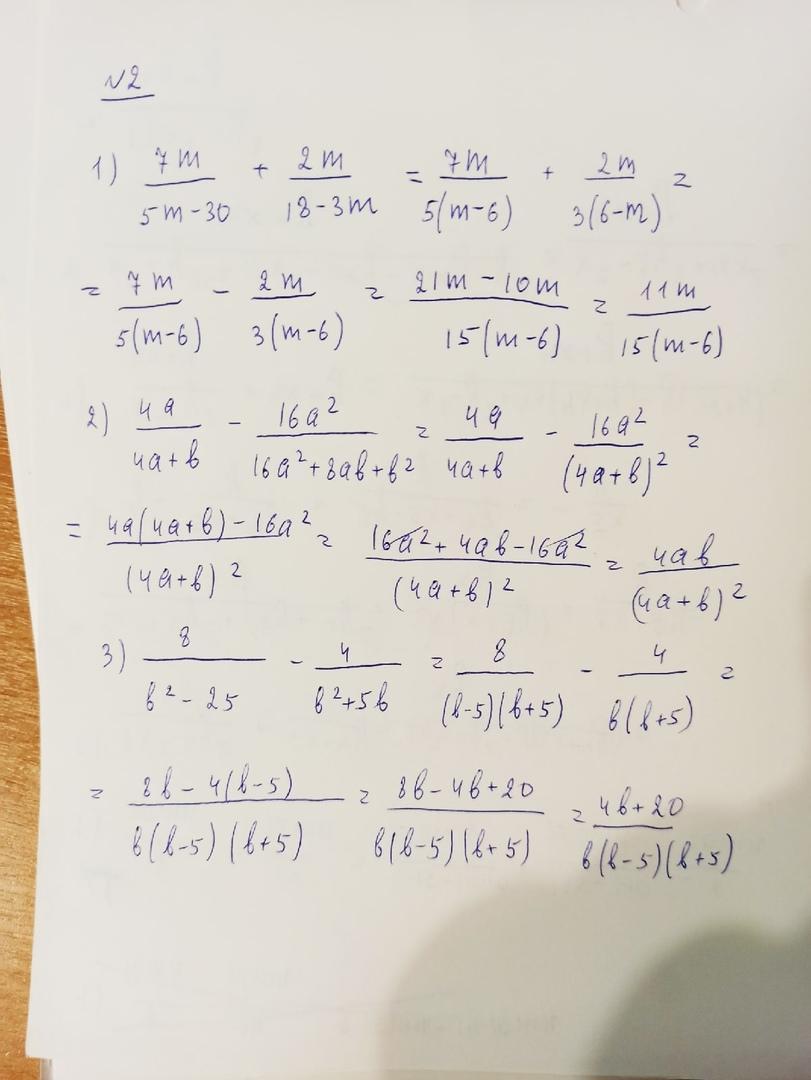 №2
1) 7m/(5m-30) + 2m/(18-3m) = 7m/(5(m-6)) + 2m/(3(6-m)) =
= 7m/(5(m-6)) - 2m/(3(m-6)) = (21m-10m)/(15(m-6)) = 11m/(15(m-6))
2) 4a/(4a+b) - 16a²/(16a²+8ab+b²) = 4a/(4a+b) - 16a²/(4a+b)² =
= (4a(4a+b)-16a²)/(4a+b)² = (16a²+4ab-16a²)/(4a+b)² = 4ab/(4a+b)²
3) 8/(b²-25) - 4/(b²+5b) = 8/((b-5)(b+5)) - 4/(b(b+5)) =
= (8b-4(b-5))/(b(b-5)(b+5)) = (8b-4b+20)/(b(b-5)(b+5)) = (4b+20)/(b(b-5)(b+5))